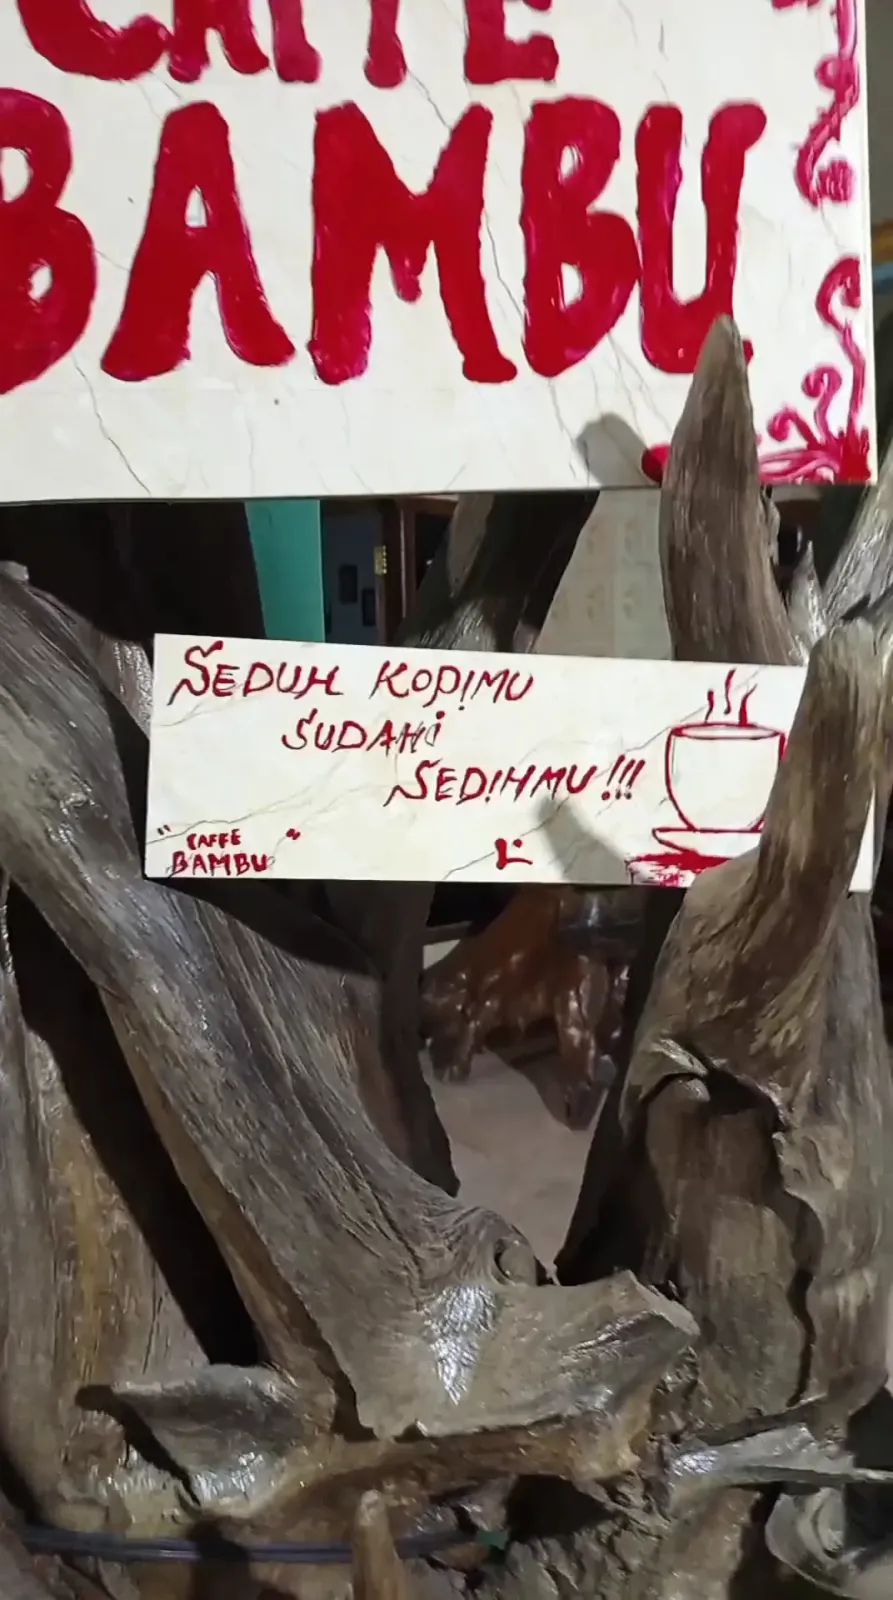 CAFFE
BAMBU
SEDUH KOPIMU
SUDAHI
SEDIHMU!!!
" CAFFE "
BAMBU